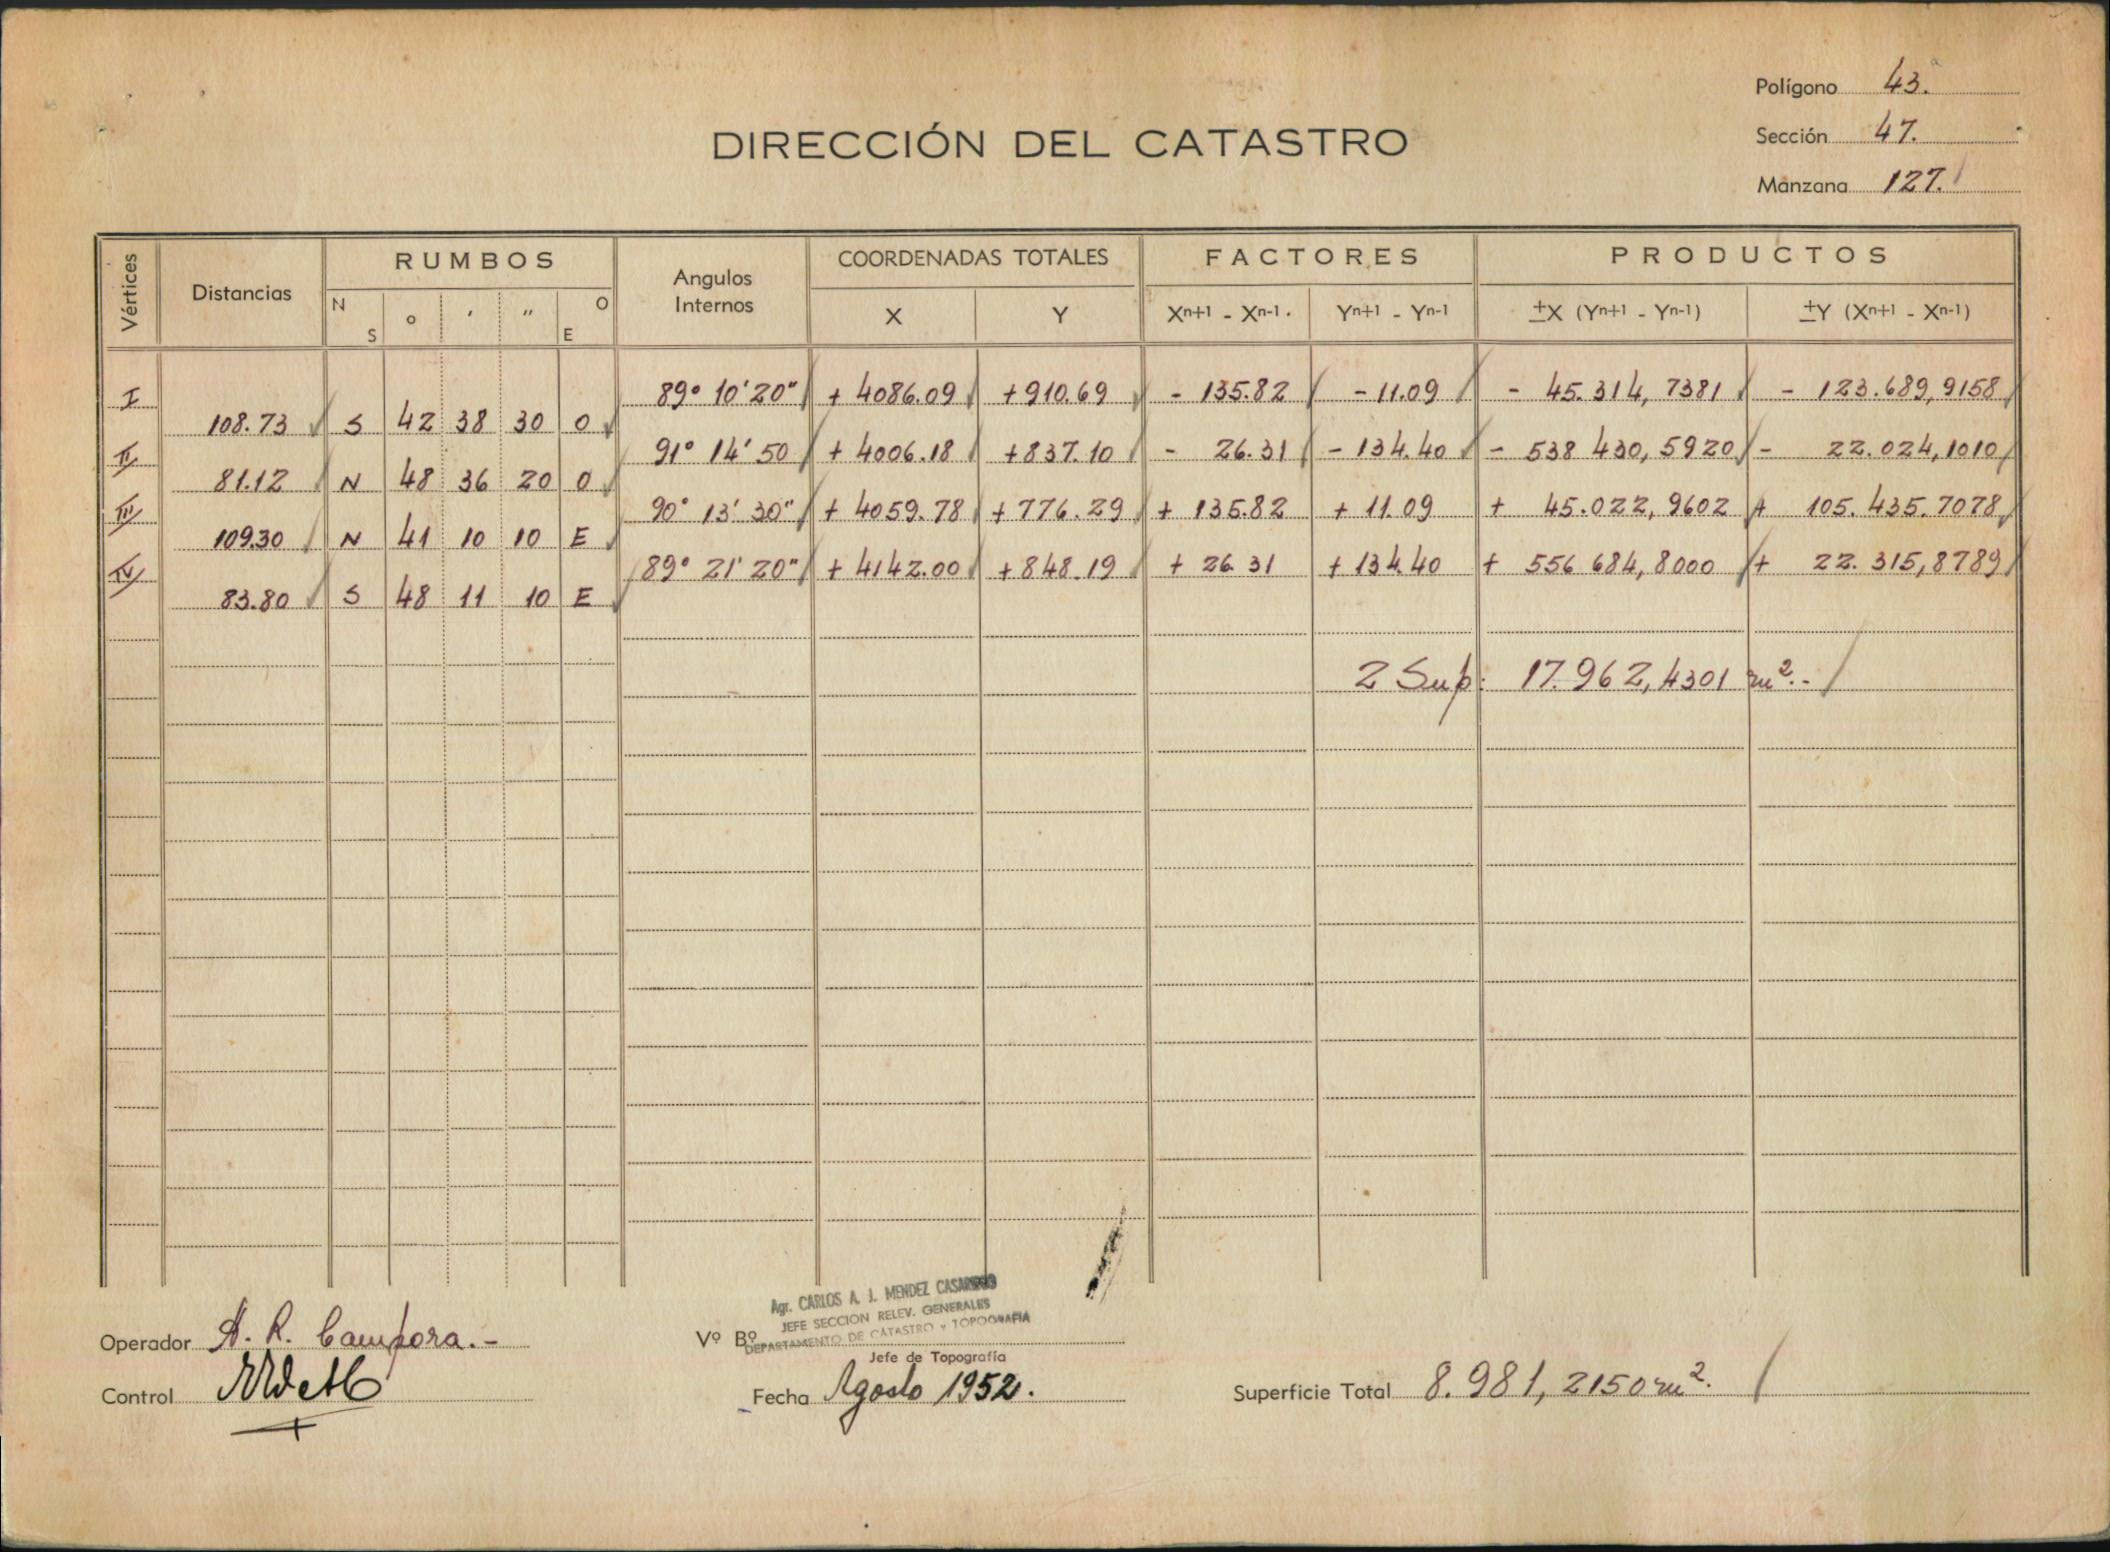 Polígono 43.
Sección 47.
Manzana 127.
DIRECCIÓN DEL CATASTRO
Vértices Distancias RUMBOS Angulos Internos COORDENADAS TOTALES FACTORES PRODUCTOS
N S ° ' " O E X Y Xn+1 - Xn-1. Yn+1 - Yn-1 ±X (Yn+1 - Yn-1) ±Y (Xn+1 - Xn-1)
I 89° 10' 20" + 4086.09 +910.69 - 135.82 - 11.09 - 45.314,7381 - 123.689,9158
108.73 S 42 38 30 O
II 91° 14' 50 + 4006.18 +837.10 - 26.31 - 134.40 - 538 430,5920 - 22.024,1010
81.12 N 48 36 20 O
III 90° 13' 30" + 4059.78 + 776.29 + 135.82 + 11.09 + 45.022,9602 + 105.435.7078
109.30 N 41 10 10 E
IV 89° 21' 20" + 4142.00 + 848.19 + 26.31 + 134.40 + 556 684,8000 + 22.315,8789
83.80 S 48 11 10 E
2 Sup: 17.962,4301 m².-
Agr. CARLOS A. J. MENDEZ
JEFE SECCION RELEV. GENERALES
DEPARTAMENTO DE CATASTRO y TOPOGRAFIA
Operador A. R. Campora.-
Vº Bº
Jefe de Topografía
Control
Fecha Agosto 1952.
Superficie Total 8.981,2150 m².